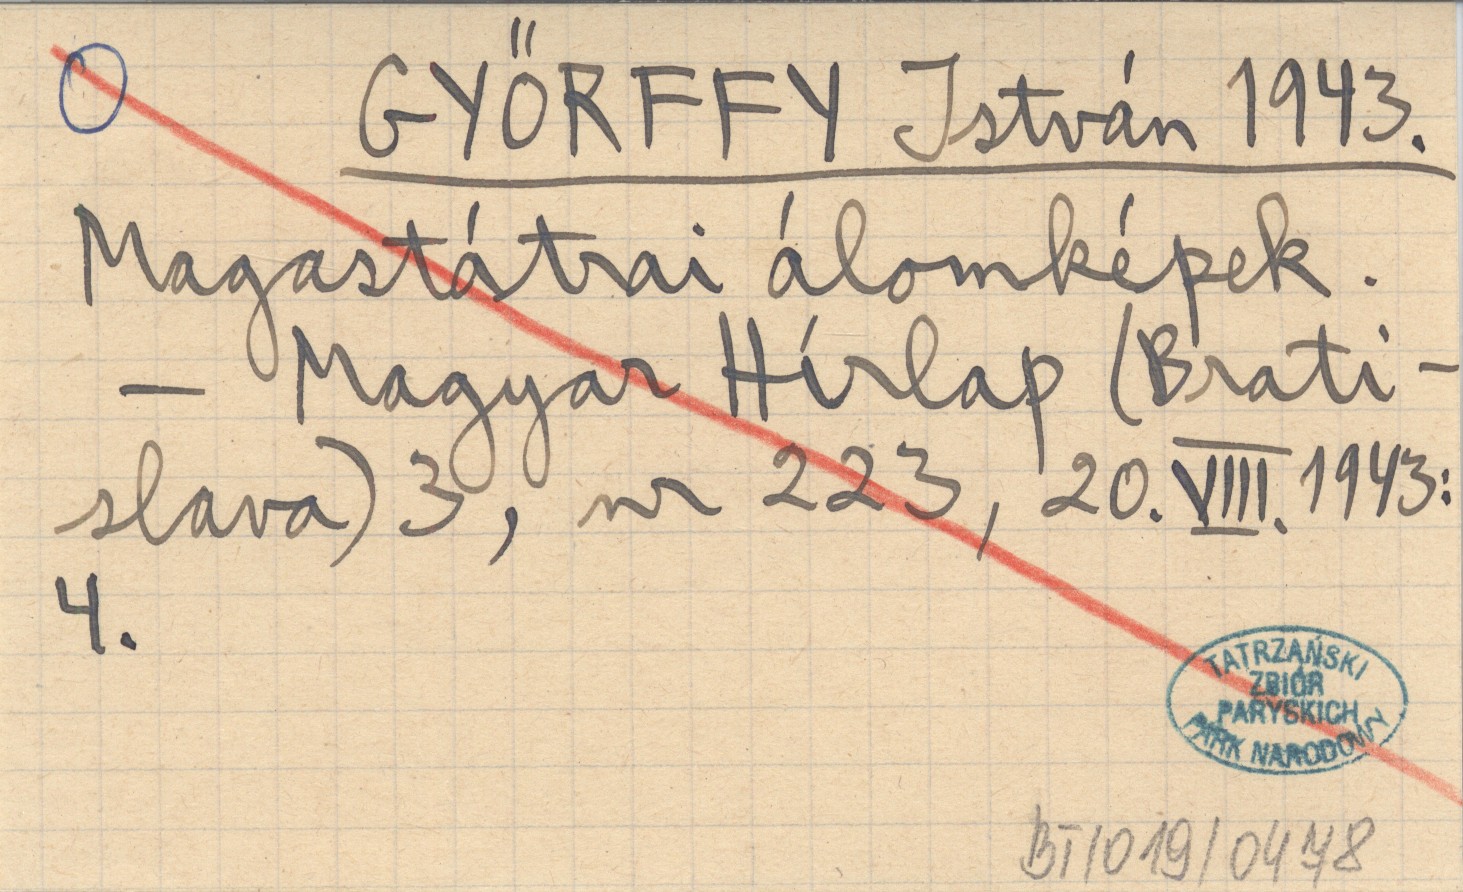 GYŐRFFY István 1943.
Magastátrai álomképek.
— Magyar Hírlap (Brati-
slava) 3, nr 223, 20. VIII. 1943:
4.
TATRZAŃSKI
ZBIÓR
PARYSKICH
PARK NARODOWY
BT/019/0478